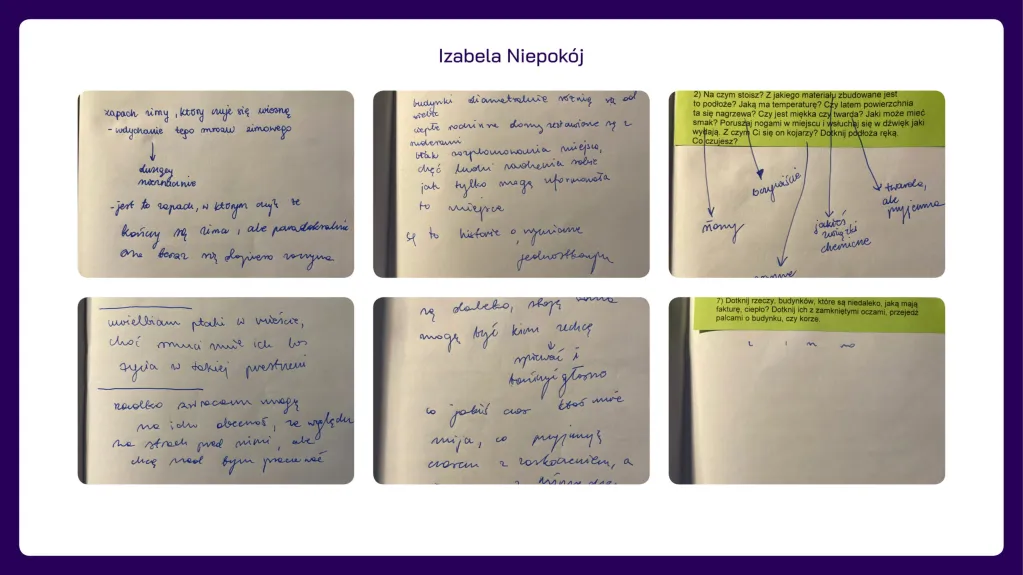 Izabela Niepokój
zapach zimy, który czuje się wiosną
- wdychanie tego mrozu zimowego
duszący
nieznacznie
- jest to zapach, w którym czuję że
kończy się zima, ale paradoksalnie
ona teraz się dopiero zaczyna
budynki diametralnie różnią się od
siebie
ciepłe rodzinne domy zestawione są z
ruderami
brak rozplanowania miejsca,
chęć ludzi radzenia sobie
jak tylko mogą uformowała
to miejsce
są to historie o
jednostkowym
2) Na czym stoisz? Z jakiego materiału zbudowane jest
to podłoże? Jaką ma temperaturę? Czy latem powierzchnia
ta się nagrzewa? Czy jest miękka czy twarda? Jaki może mieć
smak? Poruszaj nogami w miejscu i wsłuchaj się w dźwięk jaki
wydają. Z czym Ci się on kojarzy? Dotknij podłoża ręką.
Co czujesz?
oczywiście
twarda,
ale
przyjemna
słony
jakieś
związki
chemiczne
uwielbiam ptaki w mieście,
choć smuci mnie ich los
życia w takiej przestrzeni
rzadko zwracam uwagę
na ich obecność, ze względu
na strach pod nimi, ale
chcę nad tym pracować
są daleko, stoję
mogę być kim zechcę
śpiewać i
tańczyć głośno
co jakiś czas ktoś mnie
mija, co przyjmuję
czasem z zaskoczeniem, a
7) Dotknij rzeczy, budynków, które są niedaleko, jaką mają
fakturę, ciepło? Dotknij ich z zamkniętymi oczami, przejedź
palcami o budynku, czy korze.
z i m no